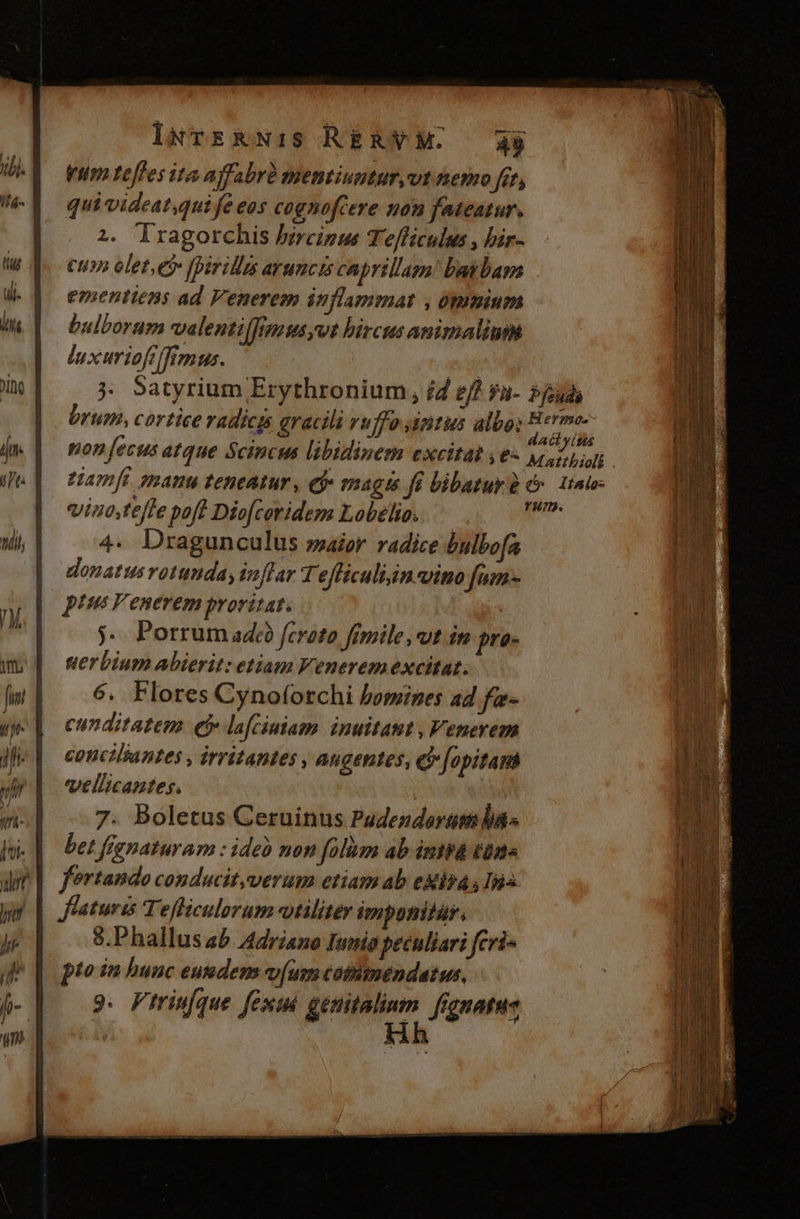 INTERNIS RERVM. 49
rum testes ita affabrè mentiuntur, vt nemo sit,
qui videat, qui se eos cognoscere non fateatur.
2. Tragorchis hircinus Testiculus, hir-
cum olet, & spirillis aruncis caprillam barbam
ementiens ad Venerem inflammat, omnium
bulborum valentissimus, vt hircus animalium
luxuriosissimus.
3. Satyrium Erythronium, id est ru-
brum, cortice radicis gracili ruffo, intus albo;
non secus atque Scincus libidinem excitat, e-
tiamsi manu teneatur, & magis si bibatur è
vino, teste post Dioscoridem Lobelio.
Pseudo
Hermo-
dactylus
Matthioli
& Italo-
rum.
4. Dragunculus maior radice bulbosa
donatus rotunda, instar Testiculi, in vino sum-
ptus Venerem proritat.
5. Porrum adeò scroto simile, vt in pro-
uerbium abierit: etiam Venerem excitat.
6. Flores Cynosorchi homines ad fœ-
cunditatem & lasciuiam inuitant, Venerem
conciliantes, irritantes, augentes, & sopitam
vellicantes.
7. Boletus Ceruinus Pudendorum ha-
bet signaturam: ideò non solùm ab intrà con-
fortando conducit, verum etiam ab extrà, In-
staturis Testiculorum vtiliter imponitur.
8. Phallus ab Adriano Iunio peculiari scri-
pto in hunc eundem vsum commendatus.
9. Vtriusque sexus genitalium signatus
Hh